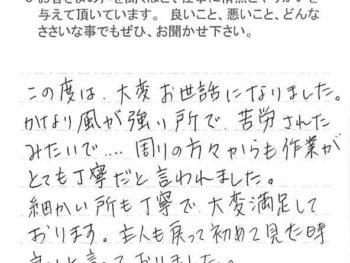 与えて頂いています。 良いこと、悪いこと、どんな
ささいな事でもぜひ、お聞かせ下さい。
この度は、大変お世話になりました。
かなり風が強い所で、苦労された
みたいで‥‥ 周りの方々からも作業が
とても丁寧だと言われました。
細かい所も丁寧で、大変満足して
おります。主人も戻って初めて見た時